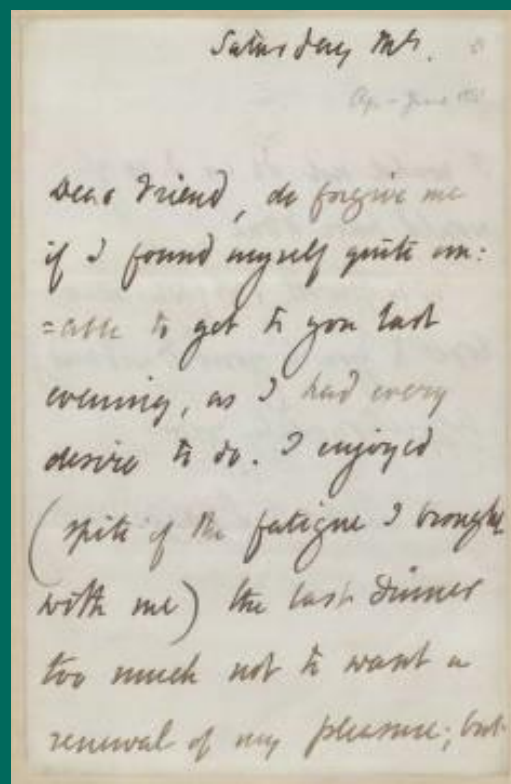 Saturday Mg.
Dear Friend, do forgive me
if I found myself quite un:
=able to get to you last
evening, as I had every
desire to do. I enjoyed
(spite of the fatigue I brought
with me) the last dinner
too much not to want a
renewal of my pleasure; but